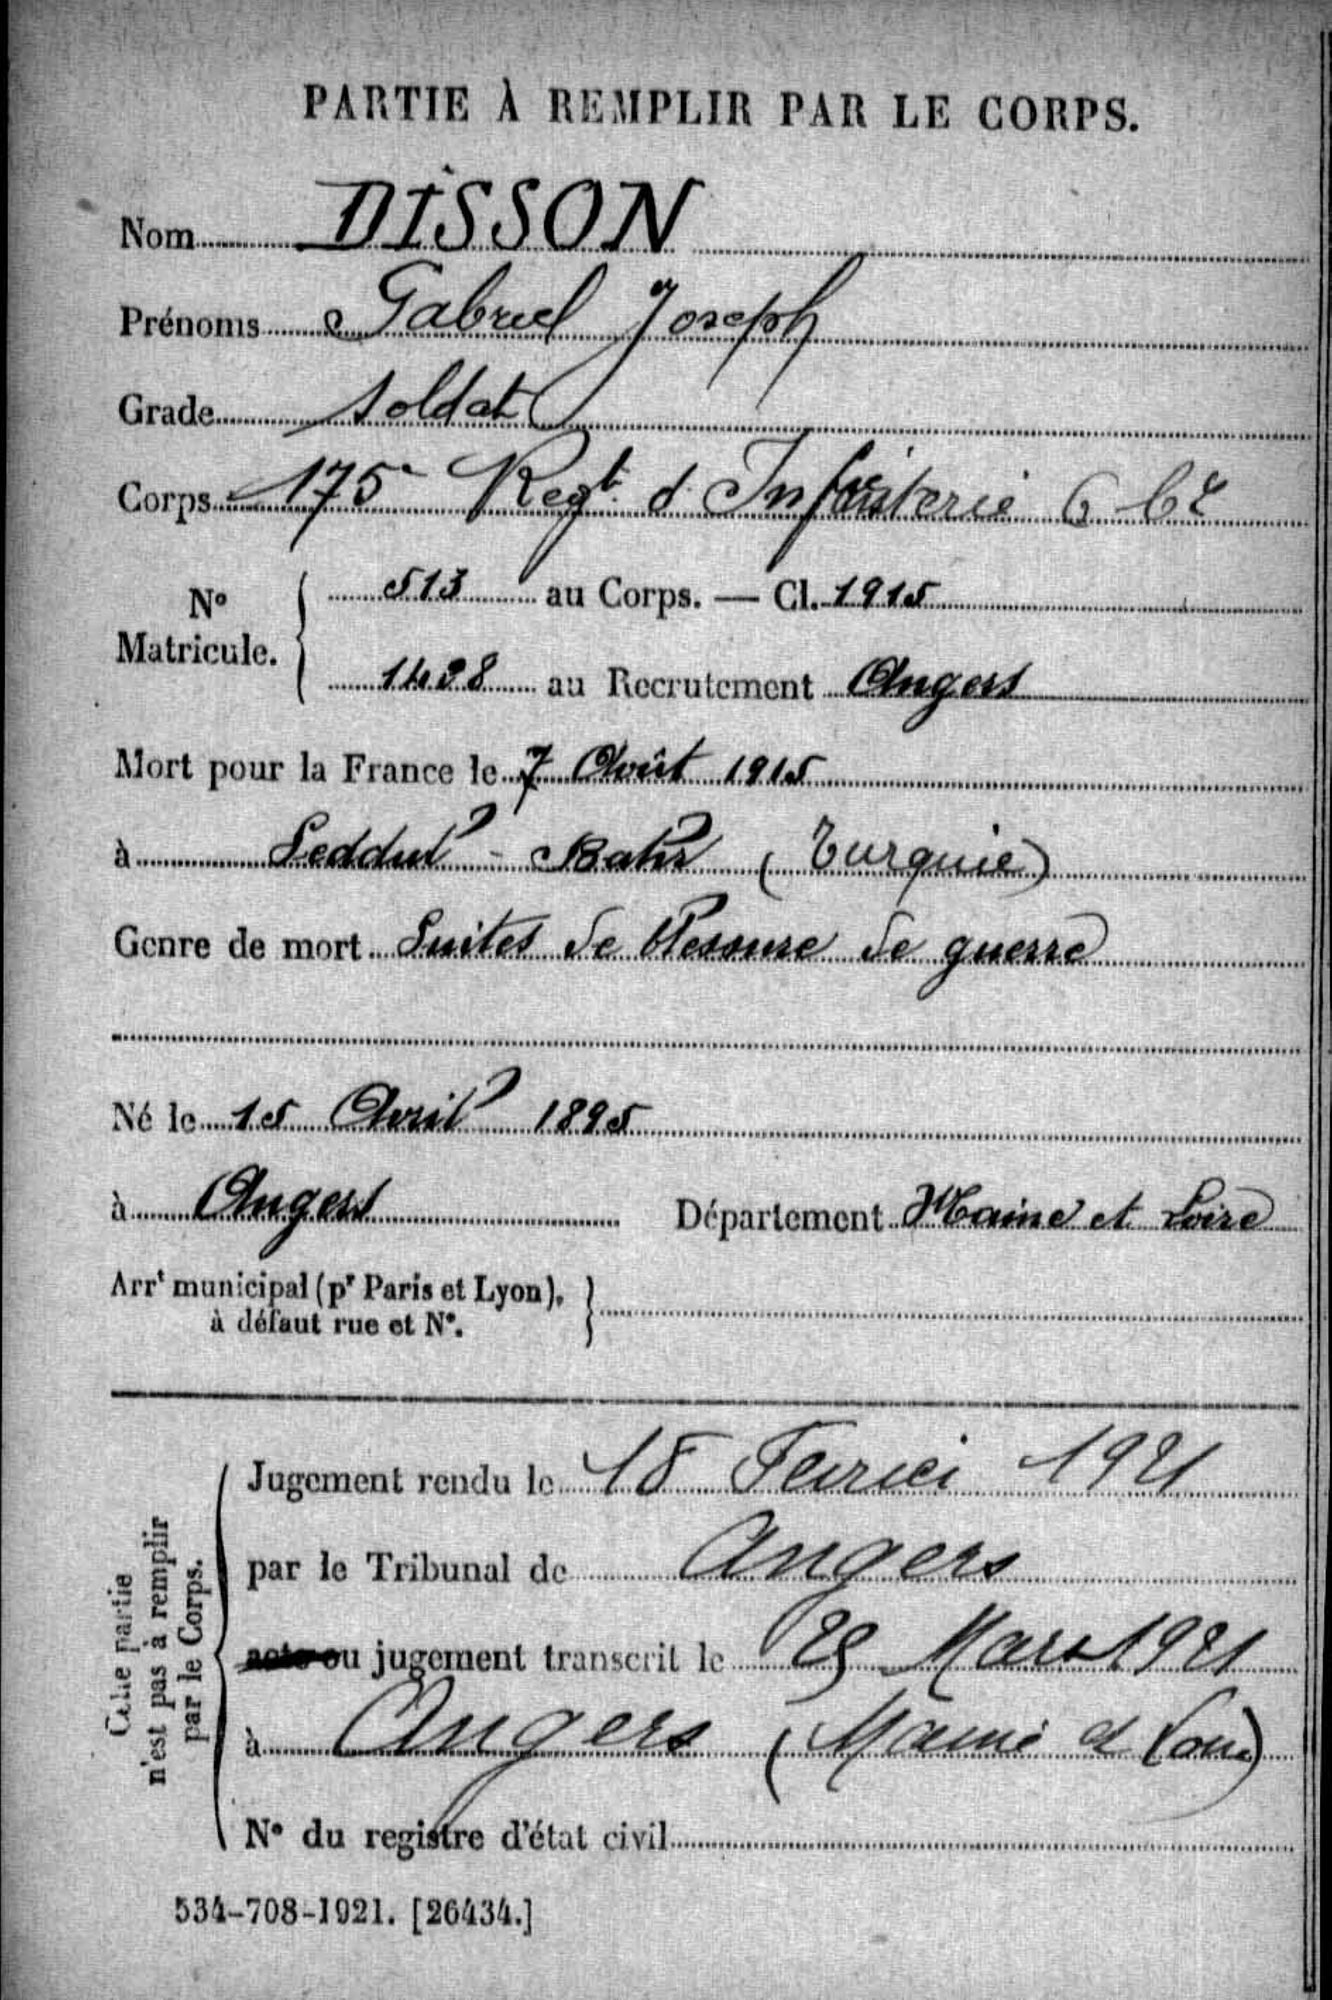 PARTIE À REMPLIR PAR LE CORPS.
Nom DISSON
Prénoms Gabriel Joseph
Grade Soldat
Corps 175e Regt. d'Infanterie
N° Matricule. 513 au Corps. — Cl. 1915
1438 au Recrutement Angers
Mort pour la France le 7 Août 1915
à Seddul-Bahr (Turquie)
Genre de mort Suites de blessure de guerre
Né le 15 Avril 1895
à Angers Département Maine et Loire
Arrt municipal (pr Paris et Lyon),
à défaut rue et N°.
Cette partie
n'est pas à remplir
par le Corps.
Jugement rendu le 18 Fevrier 1921
par le Tribunal de Angers
acte ou jugement transcrit le Mars 1921
à Angers (Maine et Loire)
N° du registre d'état civil
534-708-1921. [26434.]